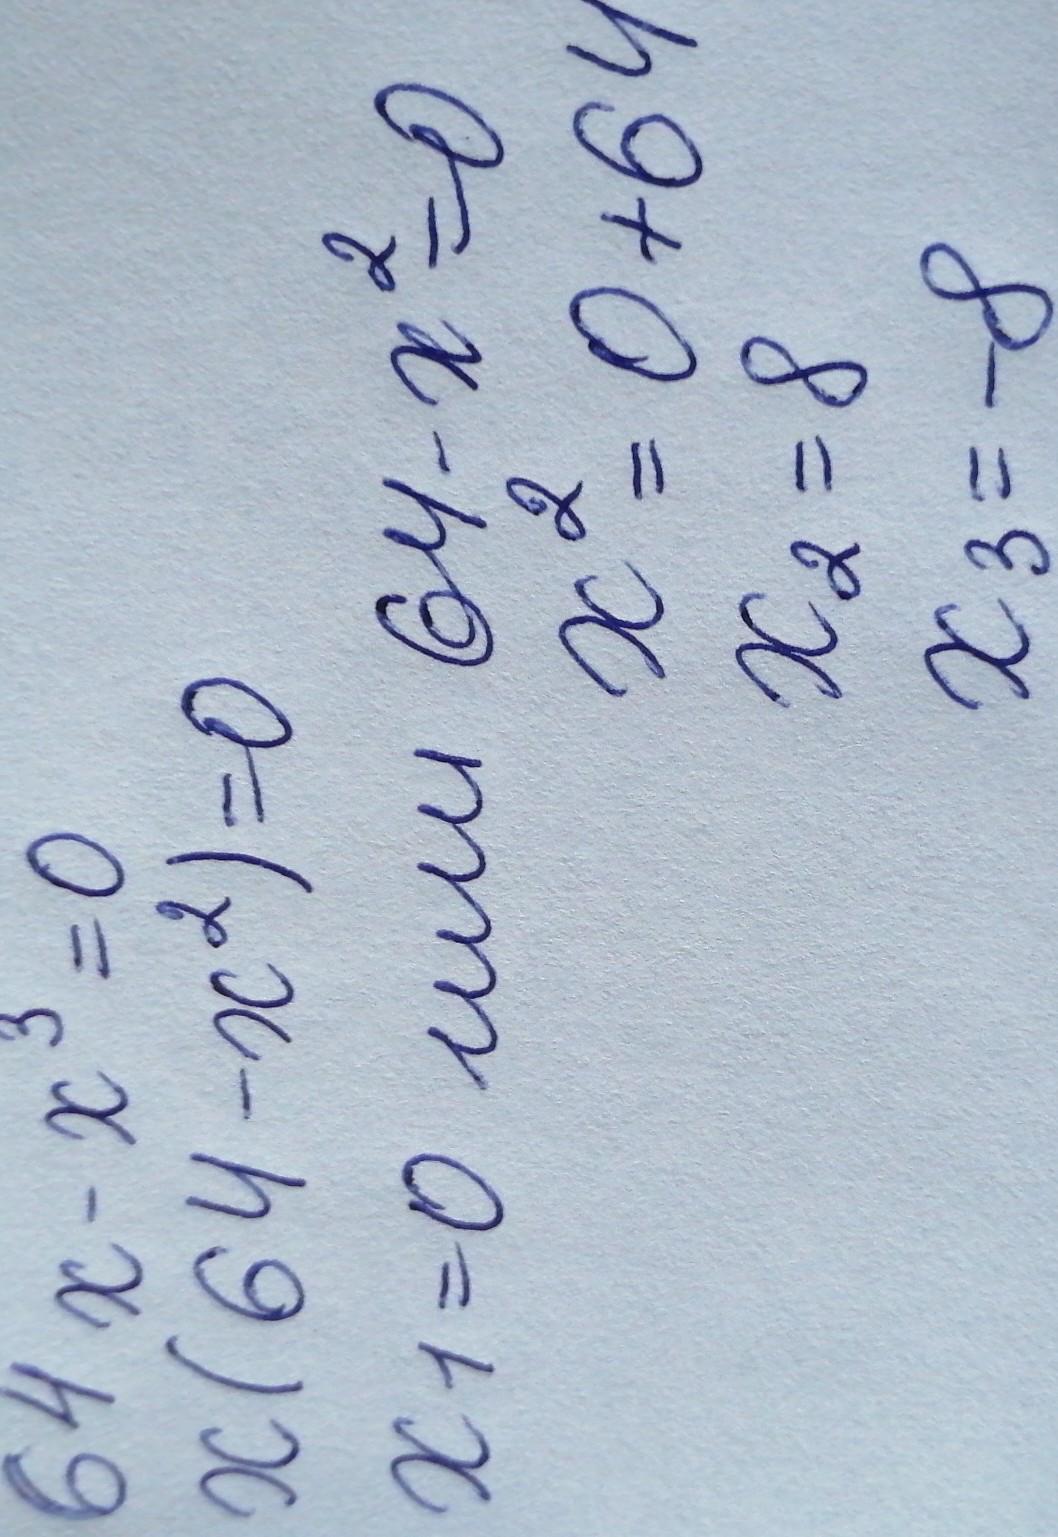 64x - x³ = 0
x(64 - x²) = 0
x₁ = 0 или 64 - x² = 0
x² = 0 + 64
x₂ = 8
x₃ = -8